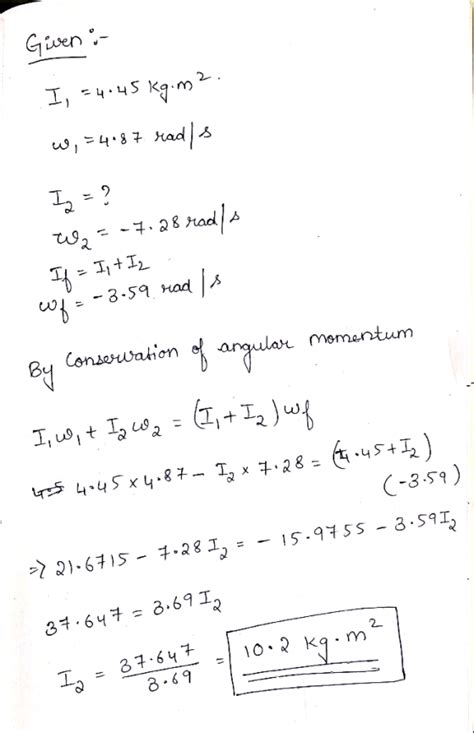 Given :-
I₁ = 4.45 kg.m².
ω₁ = 4.87 rad/s
I₂ = ?
ω₂ = -7.28 rad/s
If = I₁ + I₂
ωf = -3.59 rad/s
By Conservation of angular momentum
I₁ω₁ + I₂ω₂ = (I₁+I₂) ωf
4.45 × 4.87 - I₂ × 7.28 = (4.45+I₂)
(-3.59)
=> 21.6715 - 7.28 I₂ = - 15.9755 - 3.59I₂
37.647 = 3.69 I₂
I₂ = 37.647/3.69 = 10.2 kg.m²